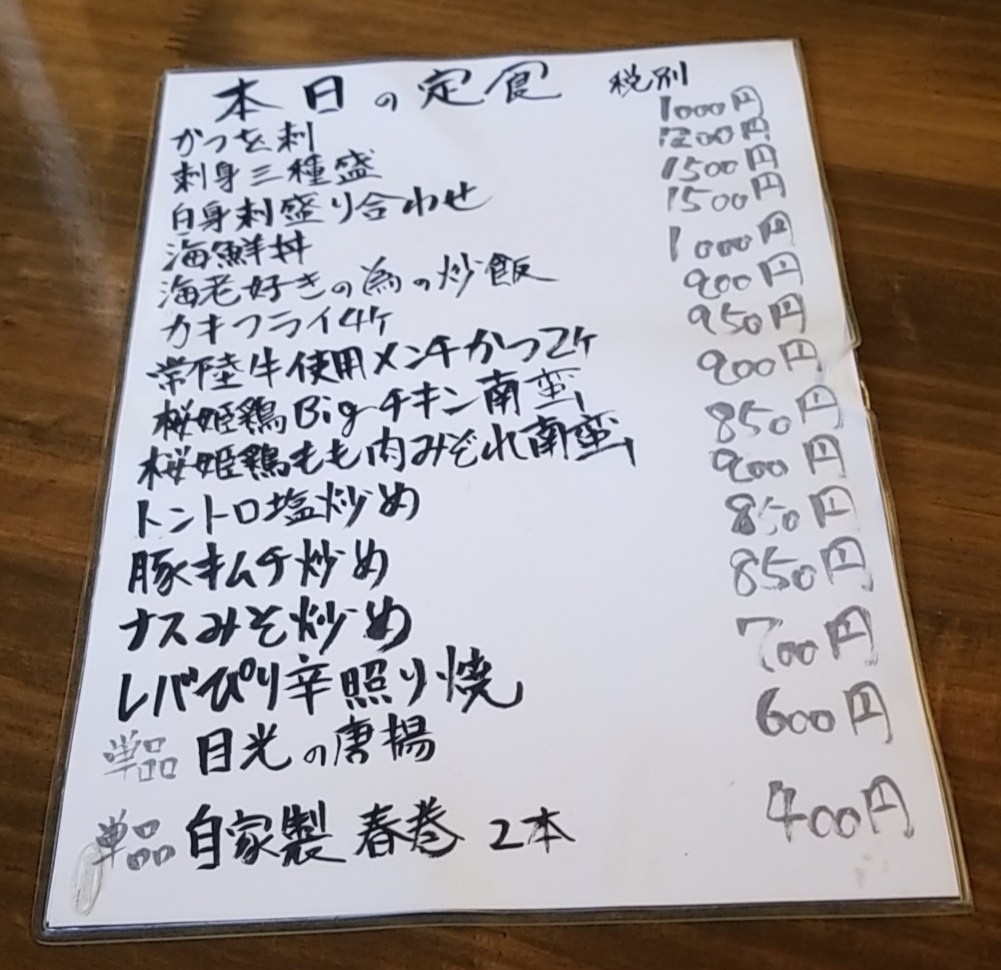 本日の定食 税別
かつを刺 1000円
刺身三種盛 1200円
白身刺盛り合わせ 1500円
海鮮丼 1500円
海老好きの為の炒飯 1000円
カキフライ4ケ 900円
常陸牛使用メンチかつ2ケ 950円
桜姫鶏Bigチキン南蛮 900円
桜姫鶏もも肉みぞれ南蛮 850円
トントロ塩炒め 900円
豚キムチ炒め 850円
ナスみそ炒め 850円
レバぴり辛照り焼 700円
単品 目光の唐揚 600円
単品 自家製 春巻 2本 400円